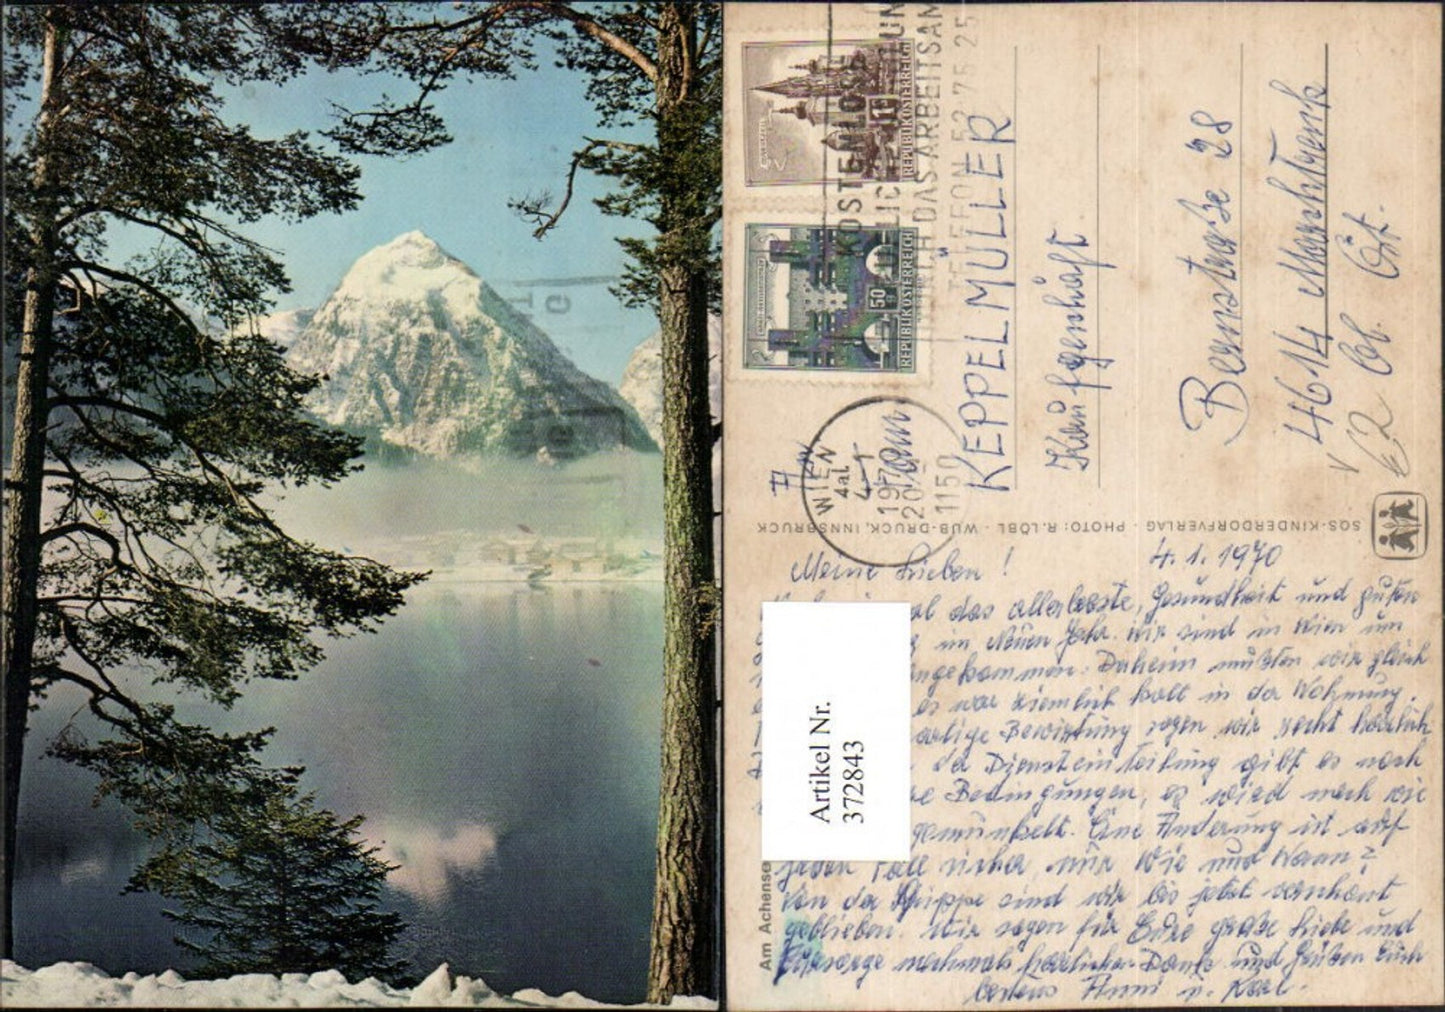 REPUBLIK ÖSTERREICH
1
REPUBLIK ÖSTERREICH
50
KOSTENLOS
DAS ARBEITSAM
TELEFON 52 75 25
WIEN
4al
1150
Fam
KEPPELMÜLLER
Kaufgeschäft
Bernstraße 28
4614 Marchtrenk
Ob. Öst.
SOS-KINDERDORFVERLAG · PHOTO: R. LÖBL · WUB-DRUCK, INNSBRUCK
4. 1. 1970
Meine Lieben!
das allerbeste, Gesundheit und guten
im Neuen Jahr. Wir sind in Wien um
angekommen. Daheim mußten wir gleich
es war ziemlich kalt in der Wohnung.
artige Bewirtung sagen wir recht herzlich
der Diensteinteilung gibt es noch
Bedingungen, es wird noch wie
gemunkelt. Eine Änderung ist auf
jeden Fall sicher, nur Wie und Wann?
Von der Grippe sind wir bis jetzt verschont
geblieben. Wir sagen für Eure große Liebe und
Fürsorge nochmals herzlichen Dank und Grüßen Euch
bestens Anni u. Karl.
Artikel Nr.
372843
Am Achense